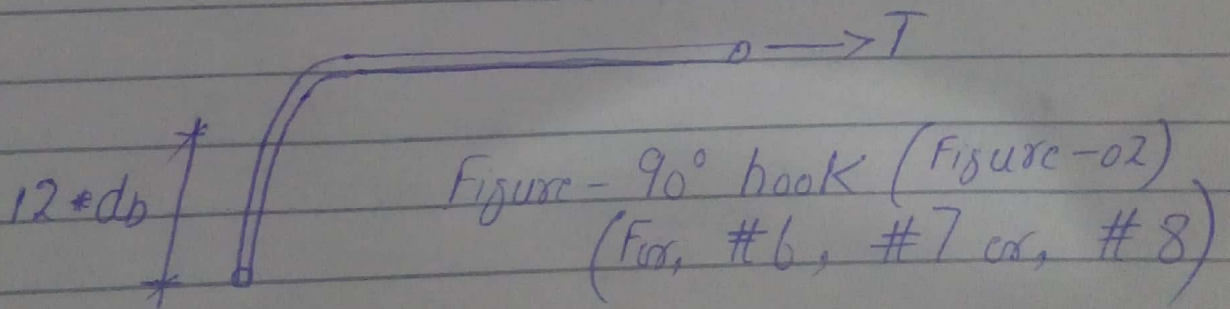 T
12*db
Figure - 90° hook (Figure-02)
(For, #6, #7 or, #8)